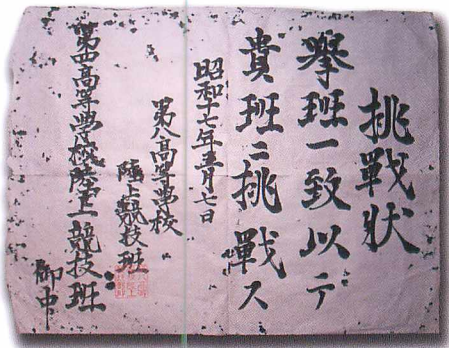 挑戰狀
擧班一致以テ
貴班ニ挑戰ス
昭和十七年五月七日
第八高等學校
陸上競技班
第四高等學校陸上競技班
御中